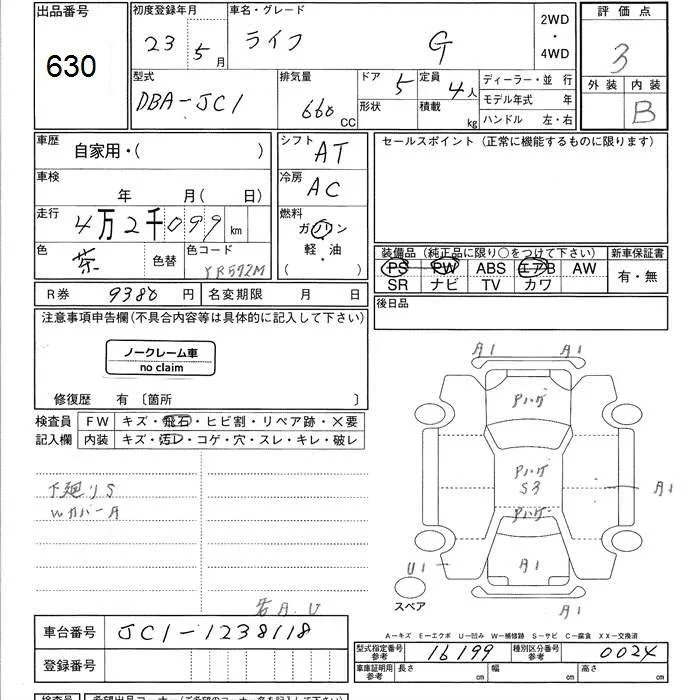 出品番号
630
初度登録年月
23 5月
車名・グレード
ライフ G
2WD
・
4WD
評価点
3
外装 内装
B
型式
DBA-JC1
排気量
660 CC
ドア 5
形状
定員 4人
積載 kg
ディーラー・並 行
モデル年式 年
ハンドル 左・右
車歴
自家用・( )
シフト AT
セールスポイント (正常に機能するものに限ります)
車検
年 月(日)
冷房 AC
走行
4万2千099 km
燃料
ガソリン
軽・油
( ・ )
色
茶 色替
色コード
YR572M
装備品 (純正品に限り○をつけて下さい)
PS PW ABS エアB AW
SR ナビ TV カワ
新車保証書
有・無
R券 9380 円
名変期限 月 日
後日品
注意事項申告欄(不具合内容等は具体的に記入して下さい)
ノークレーム車
no claim
修復歴 有 〔箇所 〕
検査員
記入欄
FW キズ・飛石・ヒビ割・リペア跡・×要
内装 キズ・汚レ・コゲ・穴・スレ・キレ・破レ
下廻りS
Wカバー
A1 A1
Pハゲ
Pハゲ
S3
Pハゲ
A1
U1
A1
A1
スペア
A-キズ E-エクボ U-凹み W-補修跡 S-サビ C-腐食 XX-交換済
車台番号 JC1-1238118
型式指定番号
参考
16199
種別区分番号
参考
0024
登録番号
車庫証明用
参考
長さ cm 幅 cm 高さ cm
検査員
希望出品コーナー (ご希望のコーナー名を記入して下さい)